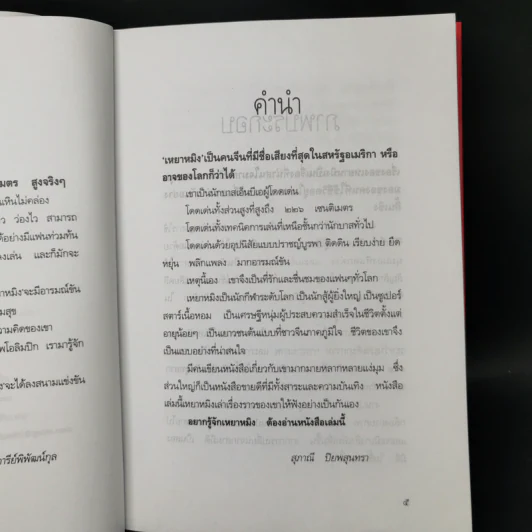 เมตร สูงจริงๆ
เห็นไม่คล่อง
ว ว่องไว สามารถ
ด้อย่างมีแฟนท่วมท้น
งเล่น และก็มักจะ
หยาหมิงจะมีอารมณ์ขัน
มสุข
วามคิดของเขา
พโอลิมปิก เรามารู้จัก
งจะได้ลงสนามแข่งขัน
ารีย์พิพัฒน์กุล
คำนำ
'เหยาหมิง'เป็นคนจีนที่มีชื่อเสียงที่สุดในสหรัฐอเมริกา หรือ
อาจของโลกก็ว่าได้
เขาเป็นนักบาสเอ็นบีเอผู้โดดเด่น
โดดเด่นทั้งส่วนสูงที่สูงถึง ๒๒๖ เซนติเมตร
โดดเด่นทั้งเทคนิคการเล่นที่เหนือชั้นกว่านักบาสทั่วไป
โดดเด่นด้วยอุปนิสัยแบบปราชญ์บูรพา ติดดิน เรียบง่าย ยืด
หยุ่น พลิกแพลง มากอารมณ์ขัน
เหตุนี้เอง เขาจึงเป็นที่รักและชื่นชมของแฟนๆทั่วโลก
เหยาหมิงเป็นนักกีฬาระดับโลก เป็นนักสู้ผู้ยิ่งใหญ่ เป็นซูเปอร์
สตาร์เนื้อหอม เป็นเศรษฐีหนุ่มผู้ประสบความสำเร็จในชีวิตตั้งแต่
อายุน้อยๆ เป็นเยาวชนต้นแบบที่ชาวจีนภาคภูมิใจ ชีวิตของเขาจึง
เป็นแบบอย่างที่น่าสนใจ
มีคนเขียนหนังสือเกี่ยวกับเขามากมายหลากหลายแง่มุม ซึ่ง
ส่วนใหญ่ก็เป็นหนังสือขายดีที่มีทั้งสาระและความบันเทิง หนังสือ
เล่มนี้เหยาหมิงเล่าเรื่องราวของเขาให้ฟังอย่างเป็นกันเอง
อยากรู้จักเหยาหมิง ต้องอ่านหนังสือเล่มนี้
สุภาณี ปิยพสุนทรา
๕